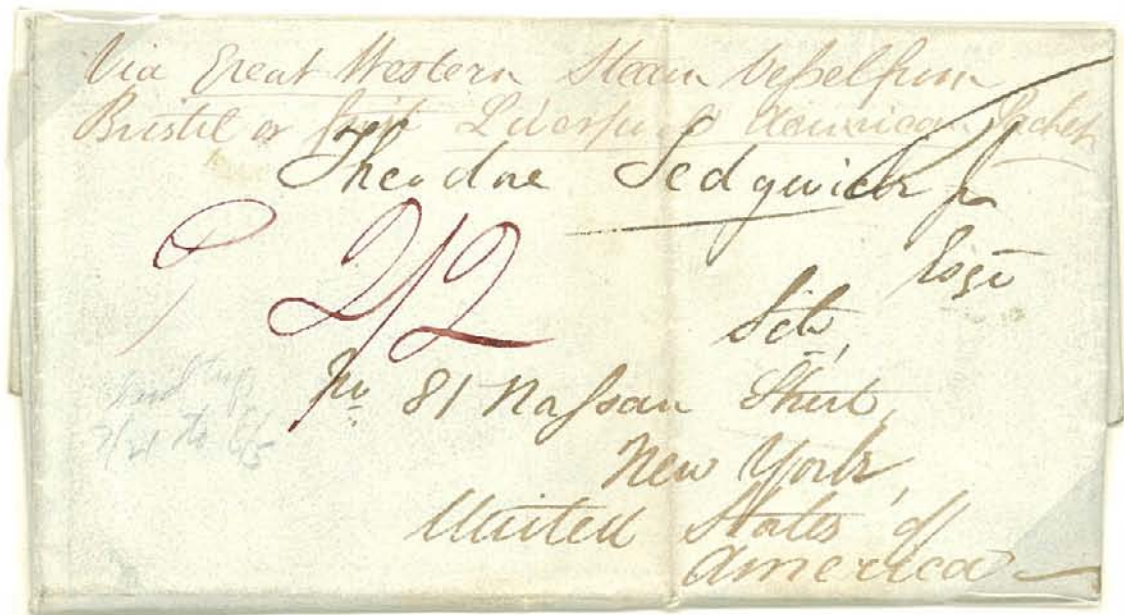 Via Great Western Steam Vessel from
Bristol or first Liverpool American Packet
Theodore Sedgwick Jr
Esqr
P 2/2
&c,
No 81 Nassau Street,
New York,
United States of
America